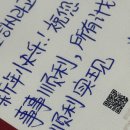 新年快乐!祝您
事事顺利,所有计
顺利实现